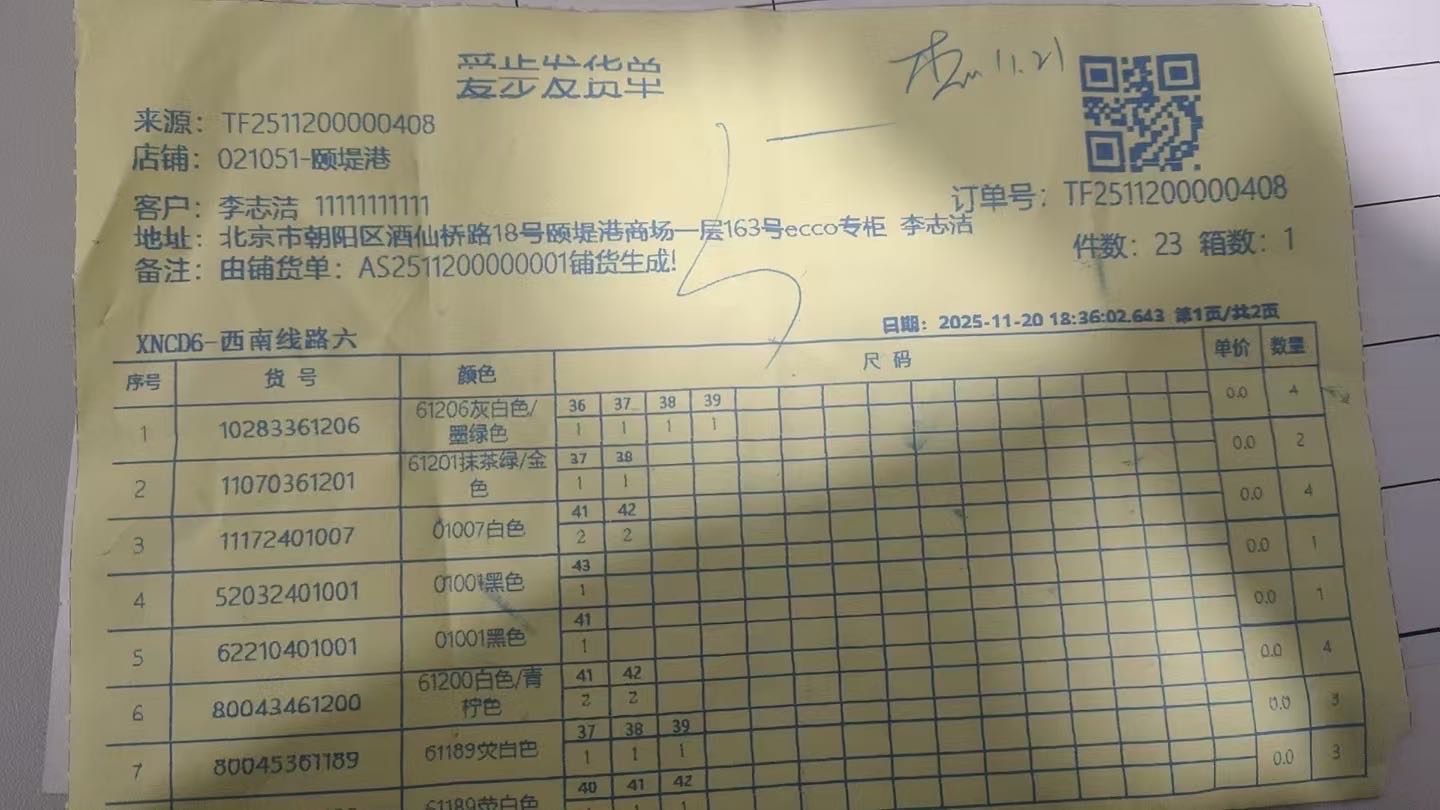 爱步发货单
11.21
来源：TF2511200000408
店铺：021051-颐堤港
客户：李志洁 11111111111
订单号：TF2511200000408
地址：北京市朝阳区酒仙桥路18号颐堤港商场一层163号ecco专柜 李志洁
件数：23 箱数：1
备注：由铺货单：AS2511200000001铺货生成!
XNCD6-西南线路六
日期：2025-11-20 18:36:02.643 第1页/共2页
序号 货号 颜色 尺码 单价 数量
36 37 38 39
1 10283361206 61206灰白色/墨绿色 1 1 1 1 0.0 4
37 38
2 11070361201 61201抹茶绿/金色 1 1 0.0 2
41 42
3 11172401007 01007白色 2 2 0.0 4
43
4 52032401001 01001黑色 1 0.0 1
41
5 62210401001 01001黑色 1 0.0 1
41 42
6 80043461200 61200白色/青柠色 2 2 0.0 4
37 38 39
7 80045361189 61189荧白色 1 1 1 0.0 3
40 41 42
61189荧白色 1 1 0.0 3